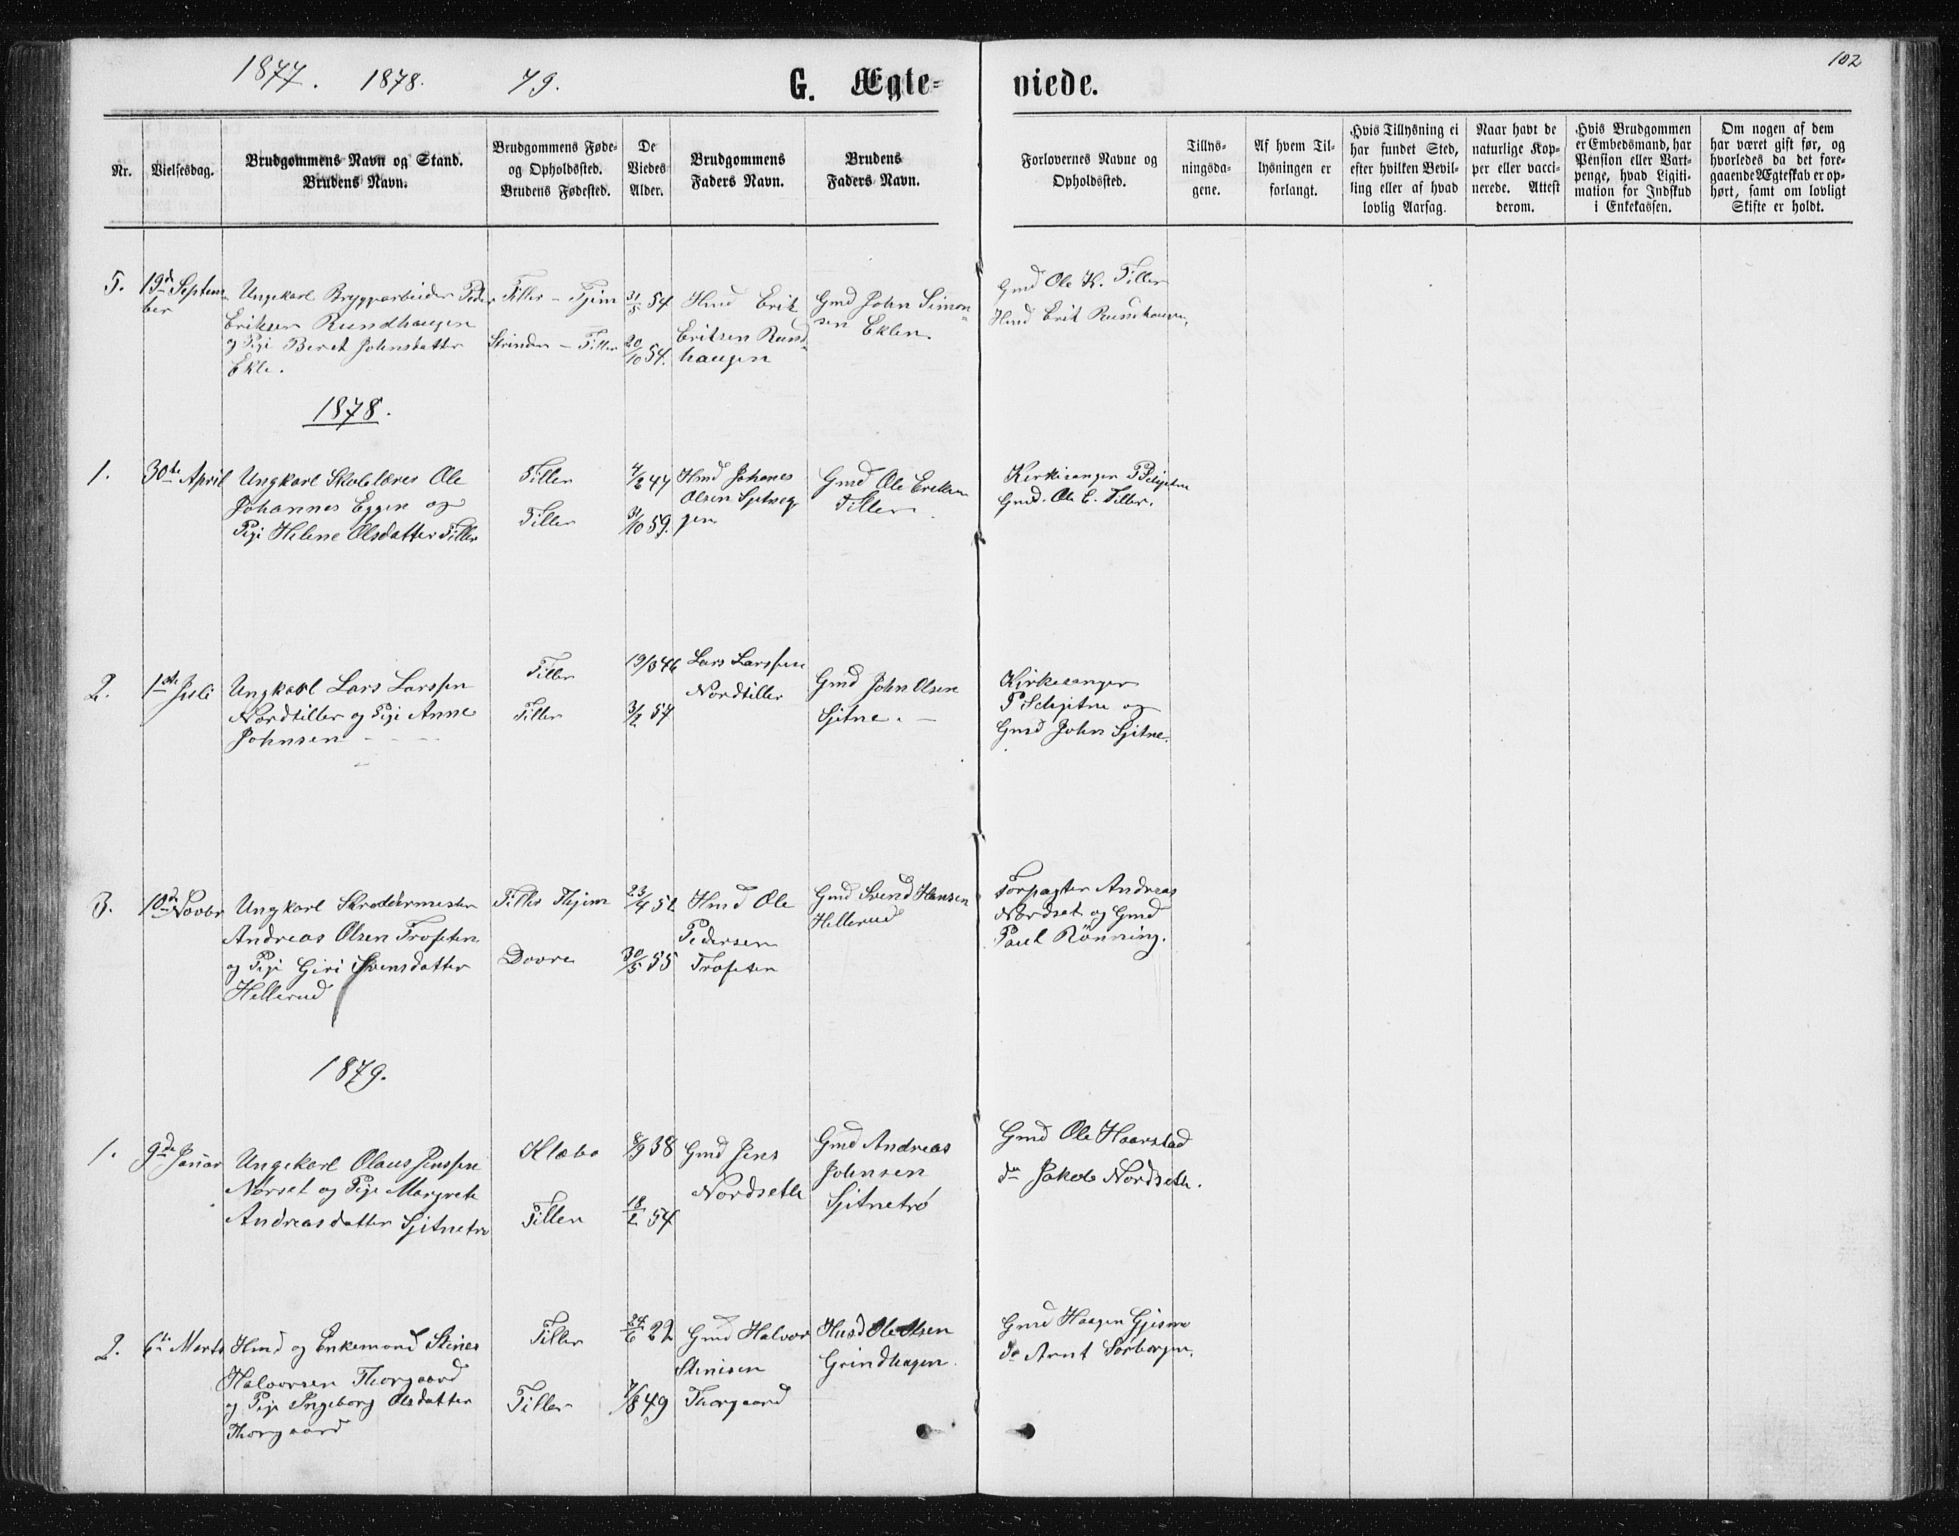 102
1877. 1878. 79.
G. Ægte- viede.
Nr.
Vielsesdag.
Brudgommens Navn og Stand.
Brudens Navn.
Brudgommens Føde-
og Opholdssted.
Brudens Fødested.
De
Viedes
Alder.
Brudgommens
Faders Navn.
Brudens
Faders Navn.
Forlovernes Navne og
Opholdssted.
Tillys-
ningsda-
gene.
Af hvem Til-
lysningen er
forlangt.
Hvis Tillysning ei
har fundet Sted,
efter hvilken Bevil-
ling eller af hvad
lovlig Aarsag.
Naar havt de
naturlige Kop-
per eller vacci-
nerede. Attest
derom.
Hvis Brudgommen
er Embedsmand, har
Pension eller Vart-
penge, hvad Ligiti-
mation for Indskud
i Enkekassen.
Om nogen af dem
har været gift før, og
hvorledes da det fore-
gaaende Ægteskab er op-
hørt, samt om lovligt
Skifte er holdt.
5.
19d Septem-
ber
Ungekarl Bryggarbeider Peder
Eriksen Rundhaugen
og Pige Beret Johnsdatter
Ekle.
Tiller - Tjim
Strinden - Tiller
31/5 54
20/10 54.
Hmd Erik
Eriksen Rund-
haugen
Gmd John Simon-
sen Eklen.
Gmd Ole K. Tiller
Hmd Erik Rundhaugen,
1878.
1.
30te April
Ungkarl Skolelærer Ole
Johannes Eggen og
Pige Helene Olsdatter Tiller
Tiller
Tiller
4/6 47
31/10 59.
Hmd Johanes
Olsen Sjetneg-
gen
Gmd Ole Eriksen
Tiller.
Kirkesanger P Schjetne
Gmd. Ole E. Tiller.
2.
1ste Juli
Ungkarl Lars Larssen
Nordtiller og Pige Anne
Johnsen
Tiller
Tiller
19/3 46
3/2 57
Lars Larssen
Nordtiller
Gmd John Olsen
Sjitne. -
Kirkesanger
P Schjetne og
Gmd John Sjitne.
3.
10de Novbr
Ungkarl Skreddermester
Andreas Olsen Trøseten
og Pige Giri Svensdatter
Hellerud
Tiller Thjem
Dovre
23/4 52
30/5 55
Hmd Ole
Pedersen
Trøseten
Gmd Svend Hansen
Hellerud
Forpagter Andreas
Nordset og Gmd
Paul Rönning.
1879.
1.
9de Januar
Ungekarl Olaus Jenssen
Nørset og Pige Margrete
Andreasdatter Sjitnetrø
Klæbo
Tiller
8/9 38
18/2 54
Gmd Jens
Nordseth
Gmd Andreas
Johnsen
Sjitnetrø
Gmd Ole Haarstad
do Jakob Nordseth.
2.
6te Marts
Hmd og Enkemand Stines
Halvorsen Thorgaard
og Pige Ingeborg Olsdatter
Thorgaard
Tiller
Tiller
24/6 22
7/8 49
Gmd Halvor
Stenisen
Thorgaard
Husd Ole Olsen
Grindhagen.
Gmd Haagen Gjesmo
do Arnt Sørborgen.